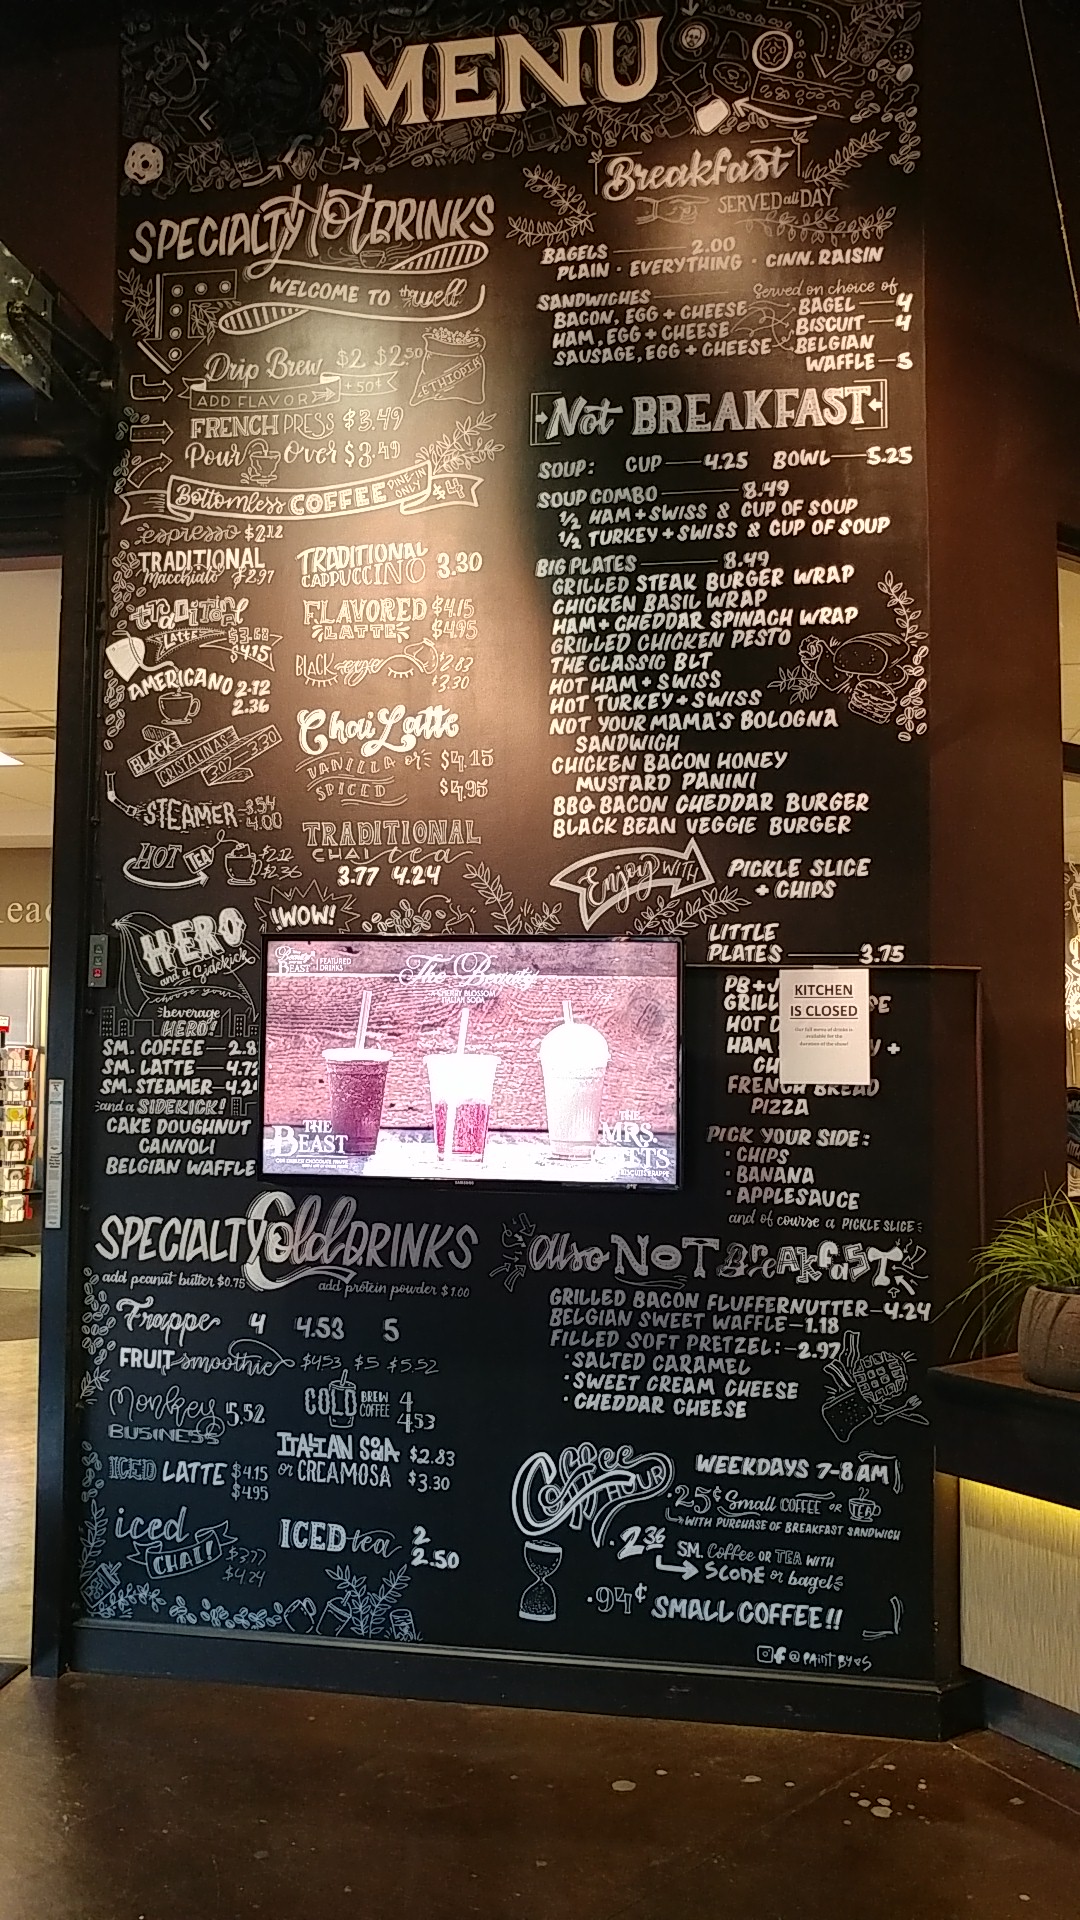 MENU
SPECIALTY Hot DRINKS
WELCOME TO the well
Drip Brew $2 $2.50
ADD FLAVOR +50¢
ETHIOPIA
FRENCH PRESS $3.49
Pour Over $3.49
Bottomless COFFEE DINE IN ONLY $4
espresso $2.12
TRADITIONAL
Macchiato $2.97
TRADITIONAL
CAPPUCCINO 3.30
traditional
latte $3.68
$4.15
FLAVORED $4.15
LATTE $4.95
BLACK eye $2.83
$3.30
AMERICANO 2.12
2.36
BLACK
CRISTALINAS 3.30
3.07
Chai Latte
VANILLA or $4.15
SPICED $4.95
STEAMER 3.54
4.00
HOT TEA $2.12
$2.36
TRADITIONAL
CHAI tea
3.77 4.24
HERO
and a Sidekick
!WOW!
choose your
beverage
HERO!
SM. COFFEE—2.8
SM. LATTE—4.72
SM. STEAMER—4.2
and a SIDEKICK!
CAKE DOUGHNUT
CANNOLI
BELGIAN WAFFLE
BEAST
FEATURED
DRINKS
The Beauty
CHERRY BLOSSOM
ITALIAN SODA
THE
BEAST
THE
MRS.
SPECIALTY Cold DRINKS
add peanut butter $0.75
add protein powder $1.00
Frappe 4 4.53 5
FRUIT smoothie $4.53 $5 $5.52
Monkey 5.52
BUSINESS
COLD BREW COFFEE 4
4.53
ICED LATTE $4.15
$4.95
ITALIAN SODA $2.83
or CREAMOSA $3.30
iced
CHAI! $3.77
$4.24
ICED tea 2
2.50
Breakfast
SERVED all DAY
BAGELS 2.00
PLAIN · EVERYTHING · CINN. RAISIN
SANDWICHES Served on choice of
BACON, EGG + CHEESE BAGEL—4
HAM, EGG + CHEESE BISCUIT—4
SAUSAGE, EGG + CHEESE BELGIAN
WAFFLE—5
Not BREAKFAST
SOUP: CUP—4.25 BOWL—5.25
SOUP COMBO 8.49
1/2 HAM + SWISS & CUP OF SOUP
1/2 TURKEY + SWISS & CUP OF SOUP
BIG PLATES 8.49
GRILLED STEAK BURGER WRAP
CHICKEN BASIL WRAP
HAM + CHEDDAR SPINACH WRAP
GRILLED CHICKEN PESTO
THE CLASSIC BLT
HOT HAM + SWISS
HOT TURKEY + SWISS
NOT YOUR MAMA'S BOLOGNA
SANDWICH
CHICKEN BACON HONEY
MUSTARD PANINI
BBQ BACON CHEDDAR BURGER
BLACK BEAN VEGGIE BURGER
Enjoy WITH PICKLE SLICE
+ CHIPS
LITTLE
PLATES 3.75
PB + J
GRILL
HOT D
HAM +
CH
FRENCH BREAD
PIZZA
KITCHEN
IS CLOSED
Our full menu of drinks is
available for the
duration of the show!
PICK YOUR SIDE:
· CHIPS
· BANANA
· APPLESAUCE
and of course a PICKLE SLICE
also NOT BREAKFAST
GRILLED BACON FLUFFERNUTTER—4.24
BELGIAN SWEET WAFFLE—1.18
FILLED SOFT PRETZEL:—2.97
· SALTED CARAMEL
· SWEET CREAM CHEESE
· CHEDDAR CHEESE
Coffee HOUR
WEEKDAYS 7-8AM
.25¢ Small COFFEE OR TEA
WITH PURCHASE OF BREAKFAST SANDWICH
. 2.36 SM. Coffee OR TEA WITH
SCONE or bagel
.94¢ SMALL COFFEE!!
@PAINT BY